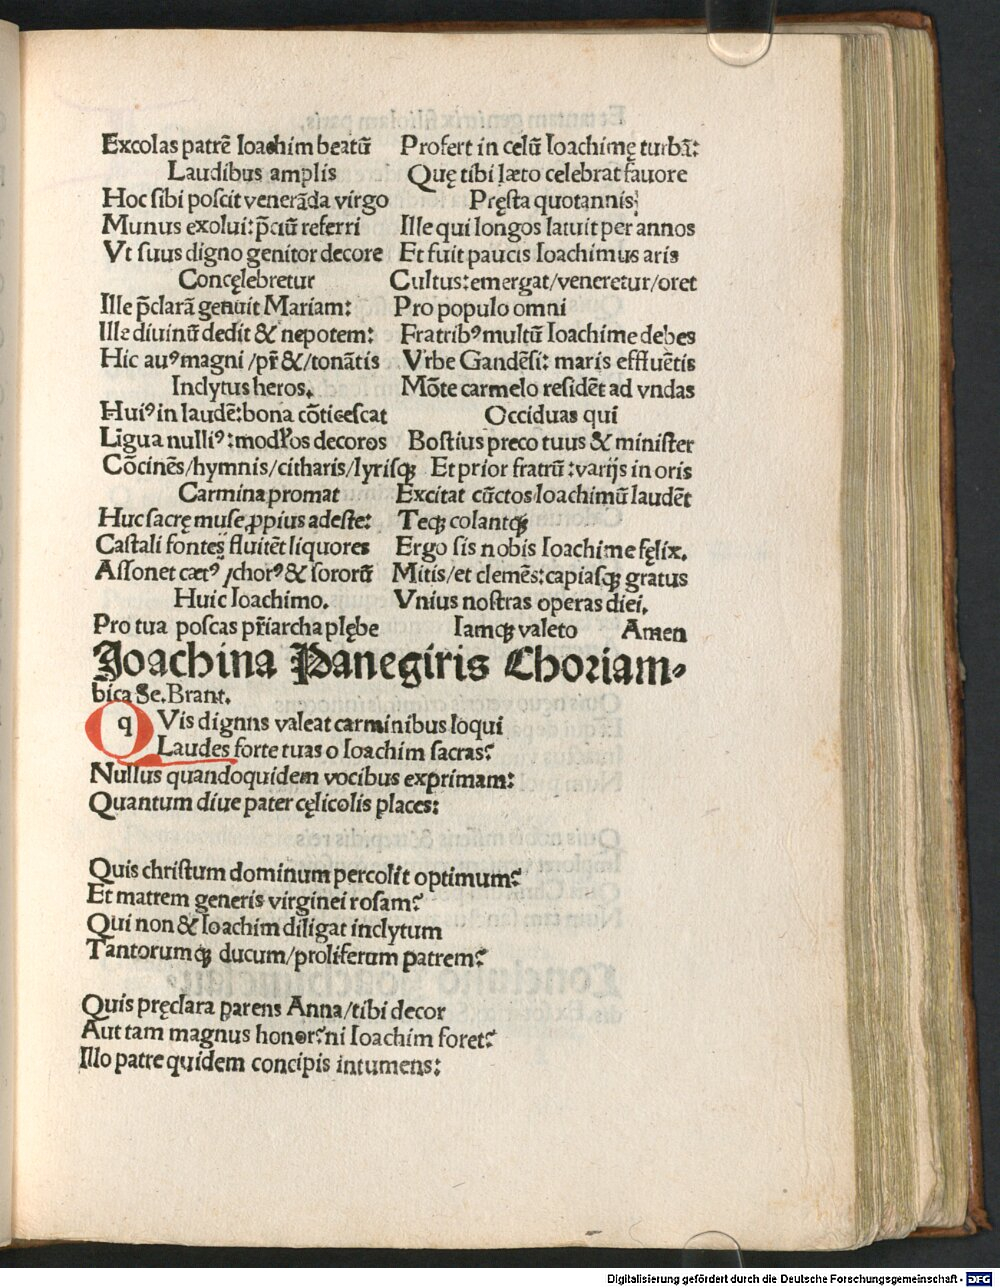 Excolas patrē Ioachim beatū
Laudibus amplis
Hoc sibi poscit venerāda virgo
Munus exolui: p̄ciū referri
Vt suus digno genitor decore
Concęlebretur
Ille p̄clarā genuit Mariam:
Ille diuinū dedit & nepotem:
Hic auꝰ magni /pr̄ &/tonātis
Inclytus heros.
Huiꝰ in laudē: bona cōticescat
Ligua nulliꝰ: modl̓os decoros
Cōcinēs/hymnis/citharis/lyrisqꝫ
Carmina promat
Huc sacrę muse ꝓpius adeste:
Castali fontes fluitēt liquores
Assonet cætꝰ /chorꝰ & sororū
Huic Ioachimo.
Pro tua poscas pr̄iarcha plębe
Profert in celū Ioachimę turbā:
Quę tibi læto celebrat fauore
Pręsta quotannis
Ille qui longos latuit per annos
Et fuit paucis Ioachimus aris
Cultus: emergat/veneretur/oret
Pro populo omni
Fratribꝰ multū Ioachime debes
Vrbe Gandēsi: maris effluētis
Mōte carmelo residēt ad vndas
Occiduas qui
Bostius preco tuus & minister
Et prior fratrū: varijs in oris
Excitat cūctos Ioachimū laudēt
Teqꝫ colantqꝫ
Ergo sis nobis Ioachime fęlix.
Mitis/et clemēs: capiasqꝫ gratus
Vnius nostras operas diei.
Iamqꝫ valeto Amen
Joachina Panegiris Choriam-
bica Se. Brant.
qVis dignns valeat carminibus loqui
Laudes forte tuas o Ioachim sacras?
Nullus quandoquidem vocibus exprimam:
Quantum diue pater cęlicolis places:
Quis christum dominum percolit optimum?
Et matrem generis virginei rosam?
Qui non & Ioachim diligat inclytum
Tantorumqꝫ ducum/proliferum patrem?
Quis pręclara parens Anna/tibi decor
Aut tam magnus honor? ni Ioachim foret?
Illo patre quidem concipis intumens:
Digitalisierung gefördert durch die Deutsche Forschungsgemeinschaft - DFG